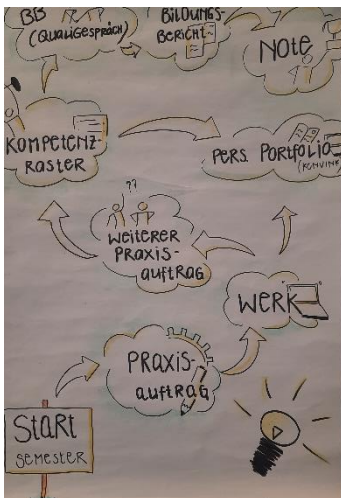 BB
(QUALIGESPRÄCH)
BILDUNGS-
BERICHT
NOTE
KOMPETENZ-
RASTER
PERS. PORTFOLIO
??
WEITERER
PRAXIS-
AUFTRAG
WERK
PRAXIS-
AUFTRAG
START
SEMESTER